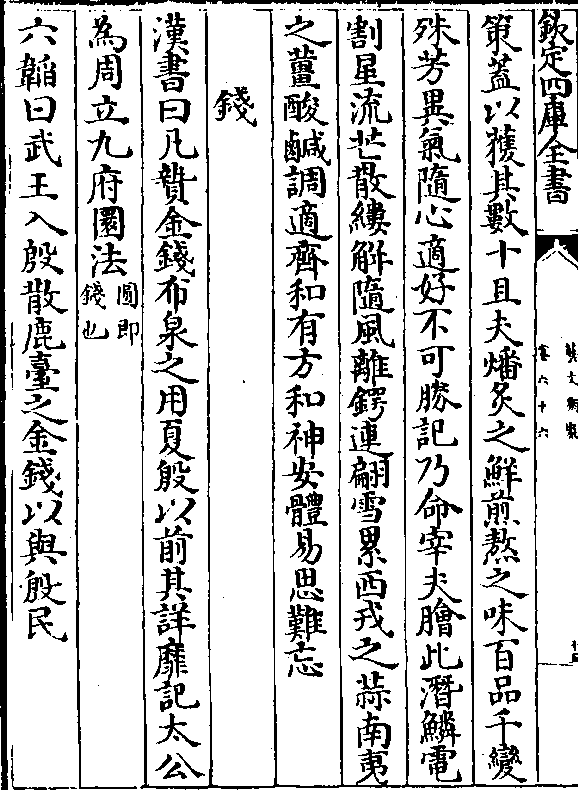 欽定四庫全書
藝文類聚
卷六十六
策蓋以獲其數十且夫燔炙之鮮煎熬之味百品千變
殊芳異氣隨心適好不可勝記乃命宰夫膾此潛鱗電
割星流芒散縷解隨風離鍔連翩雪累西戎之蒜南夷
之薑酸鹹調適齊和有方和神安體易思難忘
錢
漢書曰凡貨金錢布泉之用夏殷以前其詳靡記太公
為周立九府圜法圓即錢也
六韜曰武王入殷散鹿臺之金錢以與殷民